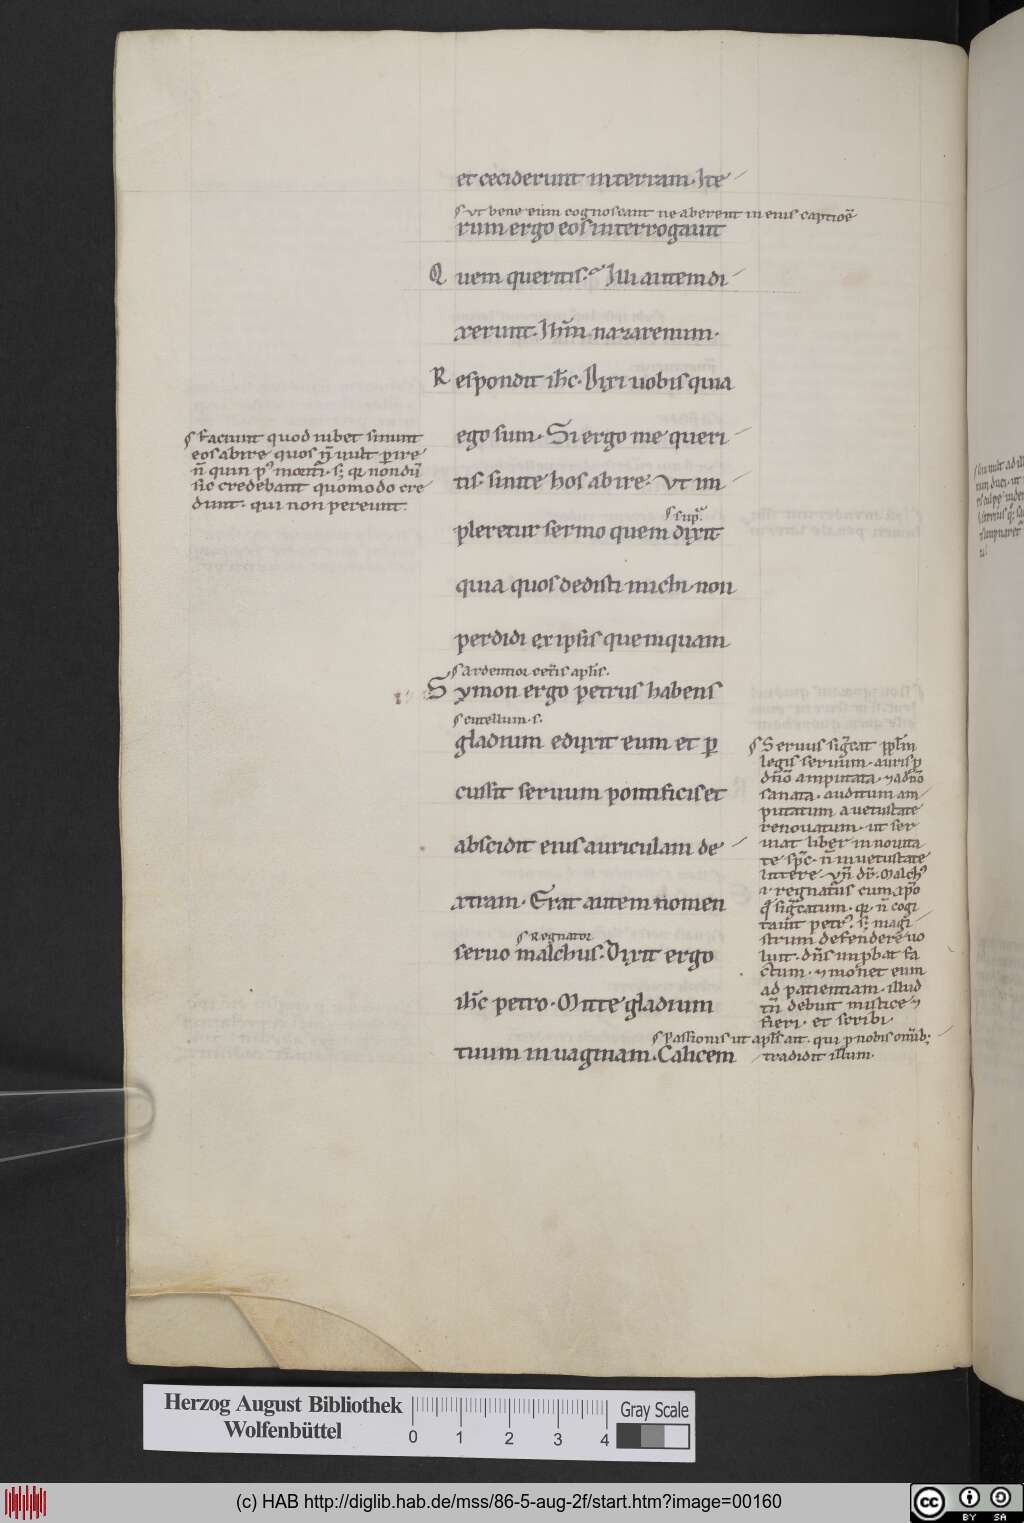 et ceciderunt in terram. Ite
ſ ut bene eum cognoscant ne aberent in eius captioē
rum ergo eos interrogauit
Quem queritis. Illi autem di
xerunt. Ihm̄ nazarenum.
Respondit ih̄c. Dixi uobis quia
ego sum. Si ergo me queri
tis. sinite hos abire. Vt im
ſ sup̄.
pleretur sermo quem dixit
quia quos dedisti michi non
perdidi ex ipsis quemquam
ſ Ardentior cet̄is apl̄is.
Symon ergo petrus habens
ſ cutellum. s.
gladium eduxit eum et ꝑ
cussit seruum pontificis et
abscidit eius auriculam de
xtram. Erat autem nomen
ſ Regnator
seruo malchus. Dixit ergo
ih̄c petro. Mitte gladium
ſ Passionis ut apl̄s ait. qui ꝓ nobis omīb;
tuum in uaginam. Calicem
tradidit illum.
ſ Faciunt quod iubet sinunt
eos abire quos n̄ uult ꝑire
n̄ quin p᾽ morit̄i. s; qr nondū
sic credebant quomodo cre
dunt. qui non pereunt.
ſ Seruus siḡcat ppl̄m
legis seruum. auris ꝑ
dn̄o amputata. ⁊ a dn̄o
sanata. auditum am
putatum a uetustate
renouatum. ut ser
uiat liber in nouita
te sp̄c. n̄ in uetustate
littere. Vn̄ dr̄. Malch᾽
.i. regnat̄us cum xp̄o
siḡcatum. qr n̄ cogi
tauit petr᾽. s; magi
strum defendere uo
luit. dn̄s inꝓbat fa
ctum. ⁊ monet eum
ad patientiam. illud
tn̄ debuit mistice ⁊
fieri. et scribi.
Herzog August Bibliothek
Wolfenbüttel
0 1 2 3 4
Gray Scale
(c) HAB http://diglib.hab.de/mss/86-5-aug-2f/start.htm?image=00160
cc BY SA